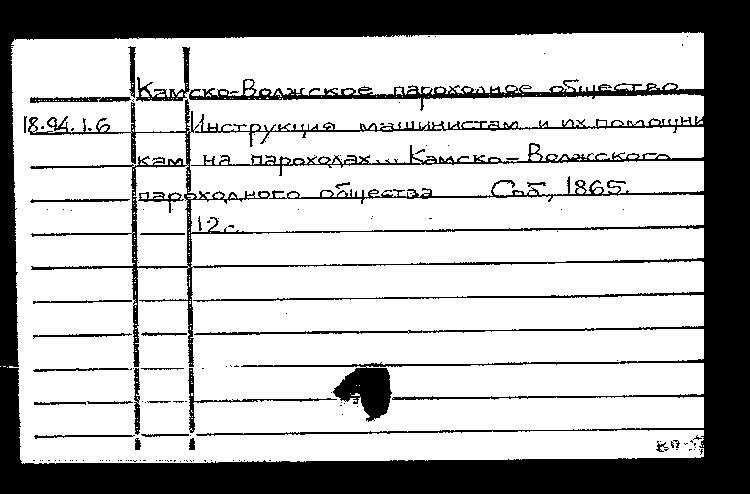 Камско-Волжское пароходное общество
18.94.1.6 Инструкция машинистам и их помощни
кам на пароходах... Камско-Волжского
пароходного общества Спб, 1865.
12 с.